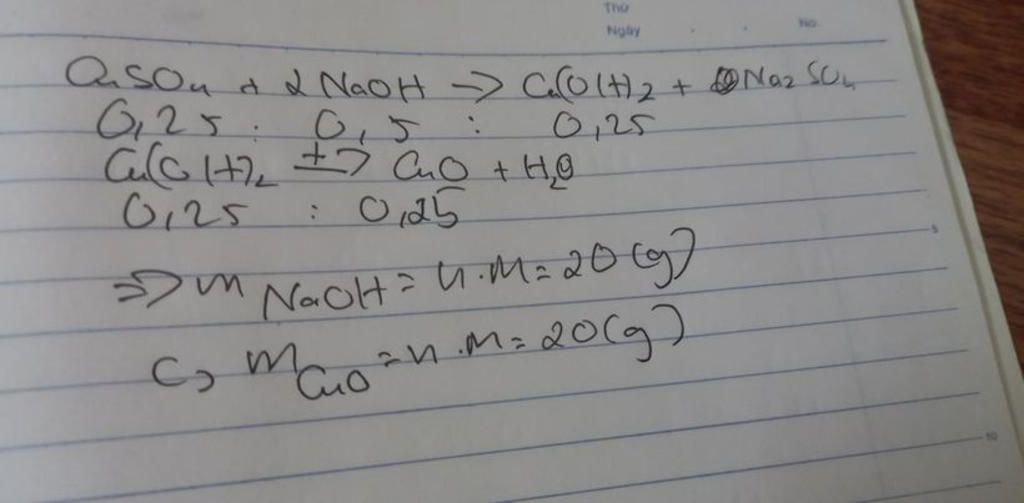 Thứ
Ngày . . No.
CuSO4 + 2 NaOH => Cu(OH)2 + Na2SO4
0,25 : 0,5 : 0,25
Cu(OH)2 t=> CuO + H2O
0,25 : 0,25
=> m NaOH = n.M = 20 (g)
c, m CuO = n.M = 20 (g)
5
10